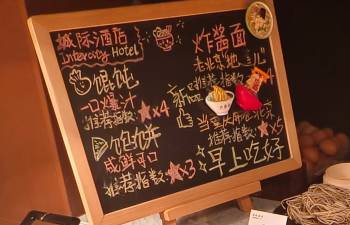 城际酒店
Intercity Hotel
馄饨
一口爆汁
推荐指数:★x4
馅饼
咸鲜可口
推荐指数:★x3
炸酱面
老北京地 儿
推荐指数
新
★x5
早上吃好